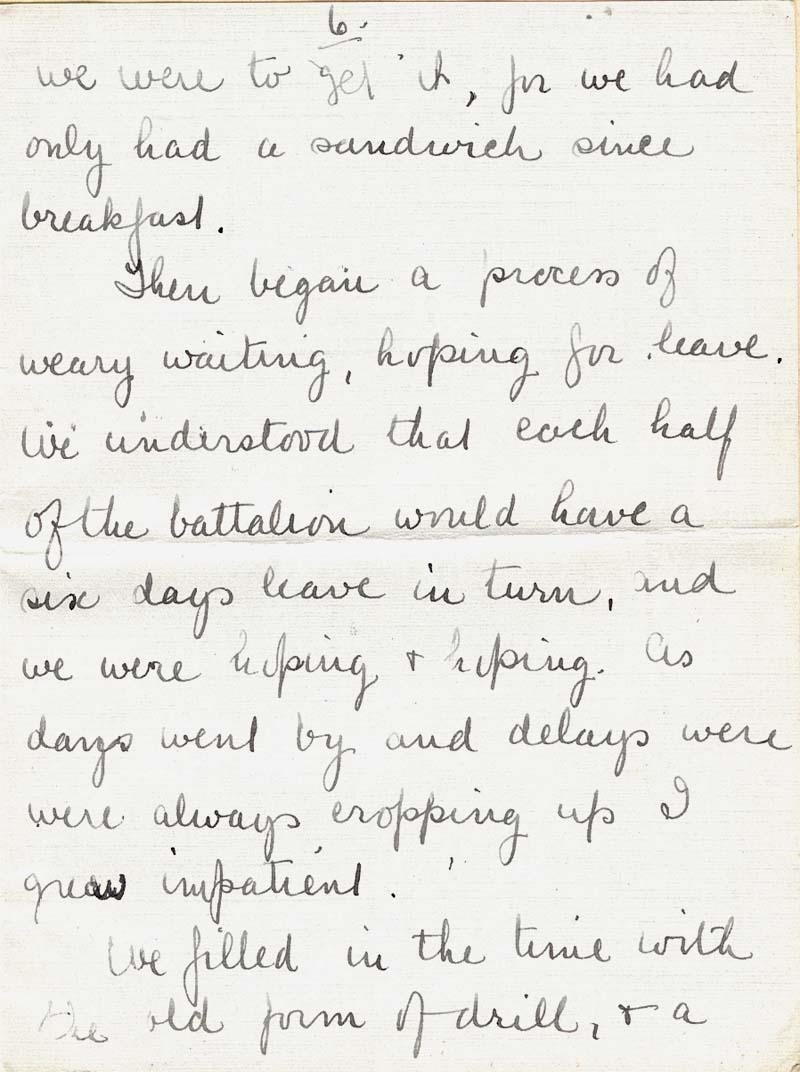 6.
we were to get it, for we had
only had a sandwich since
breakfast.
Then began a process of
weary waiting, hoping for leave.
We understood that each half
of the battalion would have a
six days leave in turn, and
we were hoping & hoping. As
days went by and delays were
were always cropping up I
grew impatient.
We filled in the time with
the old form of drill, & a